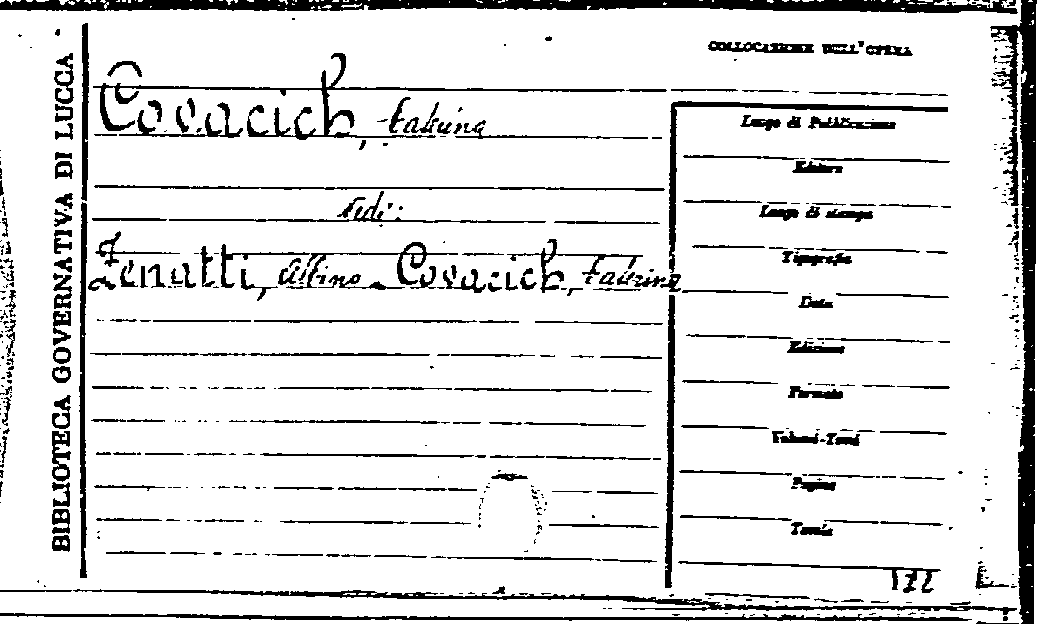 BIBLIOTECA GOVERNATIVA DI LUCCA
COLLOCAZIONE DELL'OPERA
Covacich,
Vedi:
Zenatti, Albino - Covacich,
Luogo di Pubblicazione
Editore
Luogo di stampa
Tipografia
Data
Edizione
Formato
Volumi-Tomi
Pagine
Tavole